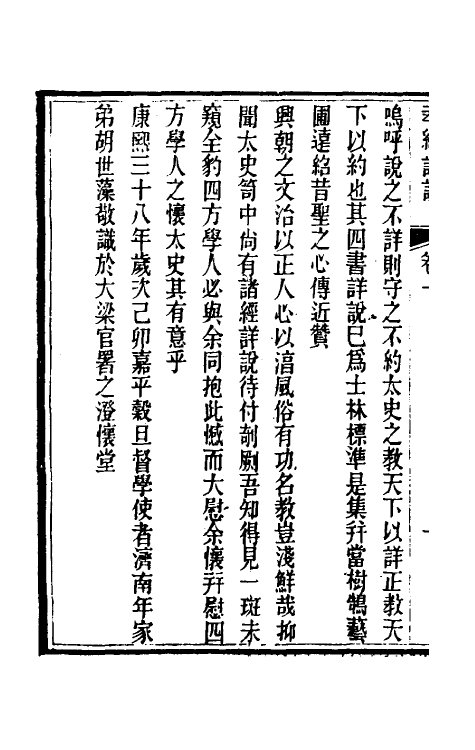 孝經詳說
卷一
一
嗚呼說之不詳則守之不約太史之教天下以詳正教天
下以約也其四書詳說巳爲士林標準是集幷當樹鵠藝
圃遠紹昔聖之心傳近贊
興朝之文治以正人心以淯風俗有功名教豈淺鮮哉抑
聞太史笥中尙有諸經詳說待付剞劂吾知得見一斑未
窺全豹四方學人必與余同抱此憾而大慰余懷幷慰四
方學人之懷太史其有意乎
康熙三十八年歲次己卯嘉平穀旦督學使者濟南年家
弟胡世藻敬識於大梁官署之澄懷堂